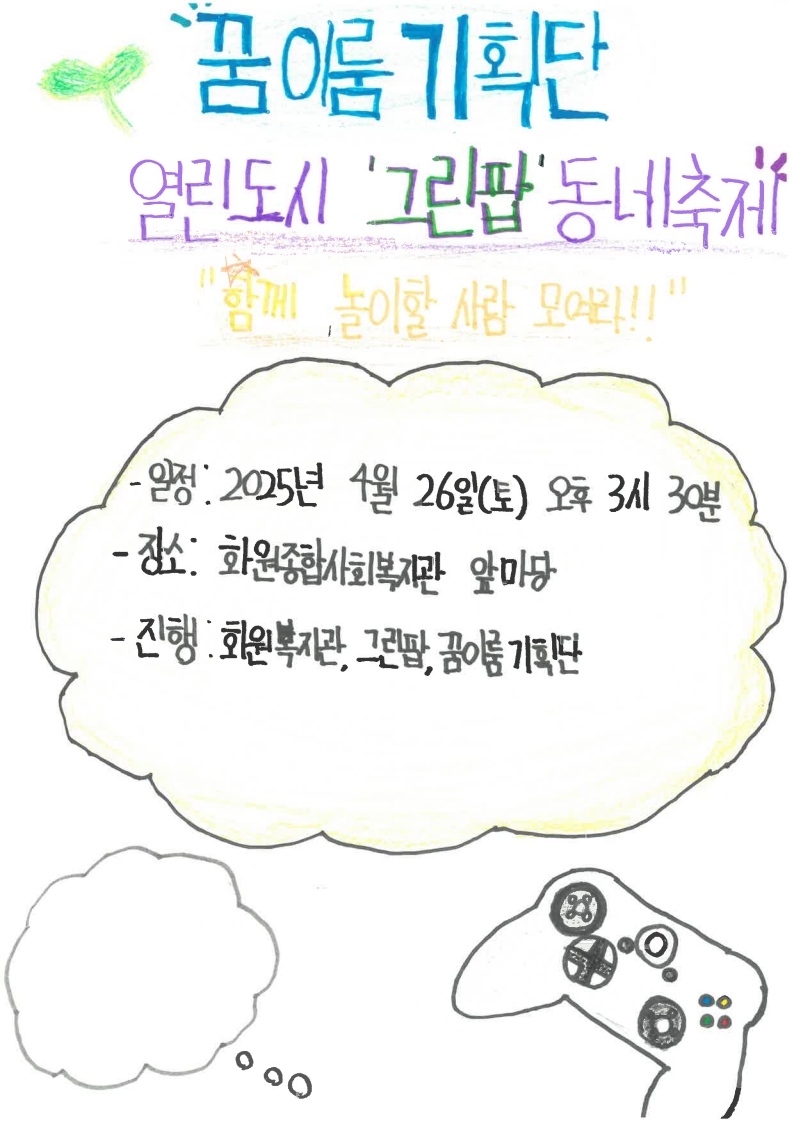 꿈이룸 기획단
열린도시 '그린팝' 동네축제
"함께 놀이할 사람 모여라!!"
- 일정: 2025년 4월 26일(토) 오후 3시 30분
- 장소: 화원종합사회복지관 앞마당
- 진행: 화원복지관, 그린팝, 꿈이룸기획단